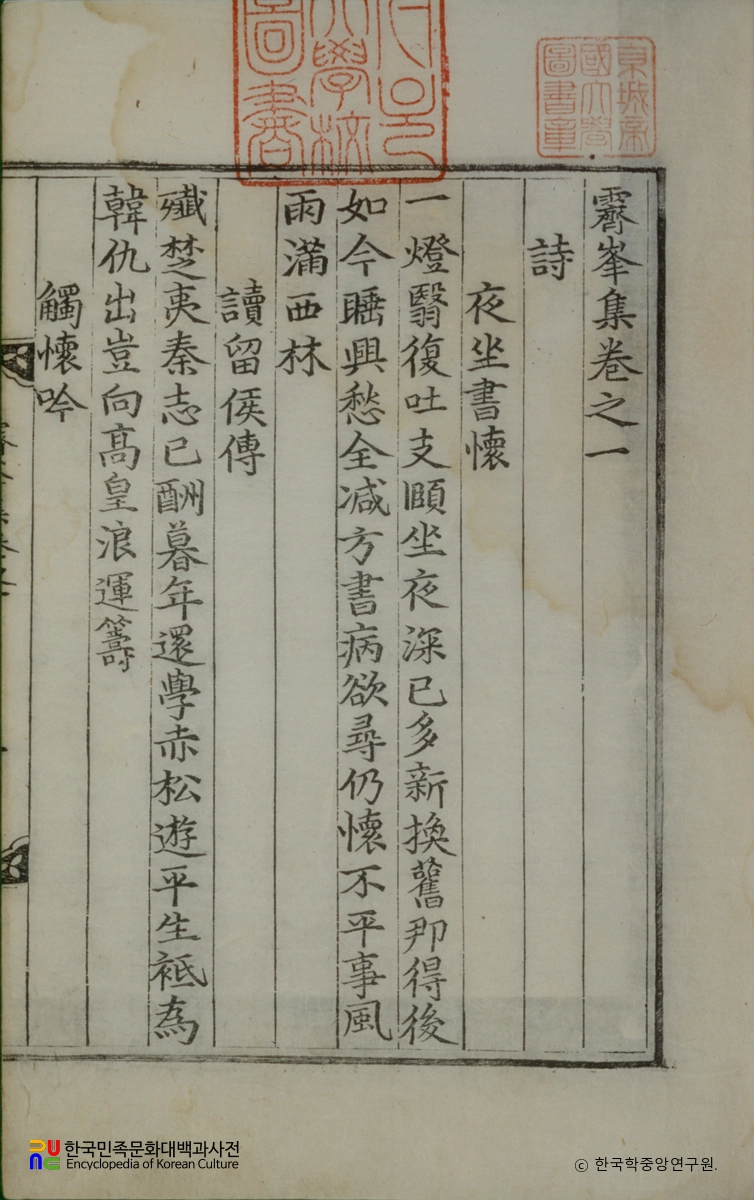 東城帝
國大學
圖書章
大學校
圖書
霽峯集卷之一
詩
夜坐書懷
一燈翳復吐支頥坐夜深已多新換舊那得後
如今睡興愁全减方書病欲尋仍懷不平事風
雨滿西林
讀留侯傳
殲楚夷秦志已酬暮年還學赤松遊平生秪為
韓仇出豈向高皇浪運籌
觸懷吟
한국민족문화대백과사전
Encyclopedia of Korean Culture
ⓒ 한국학중앙연구원.